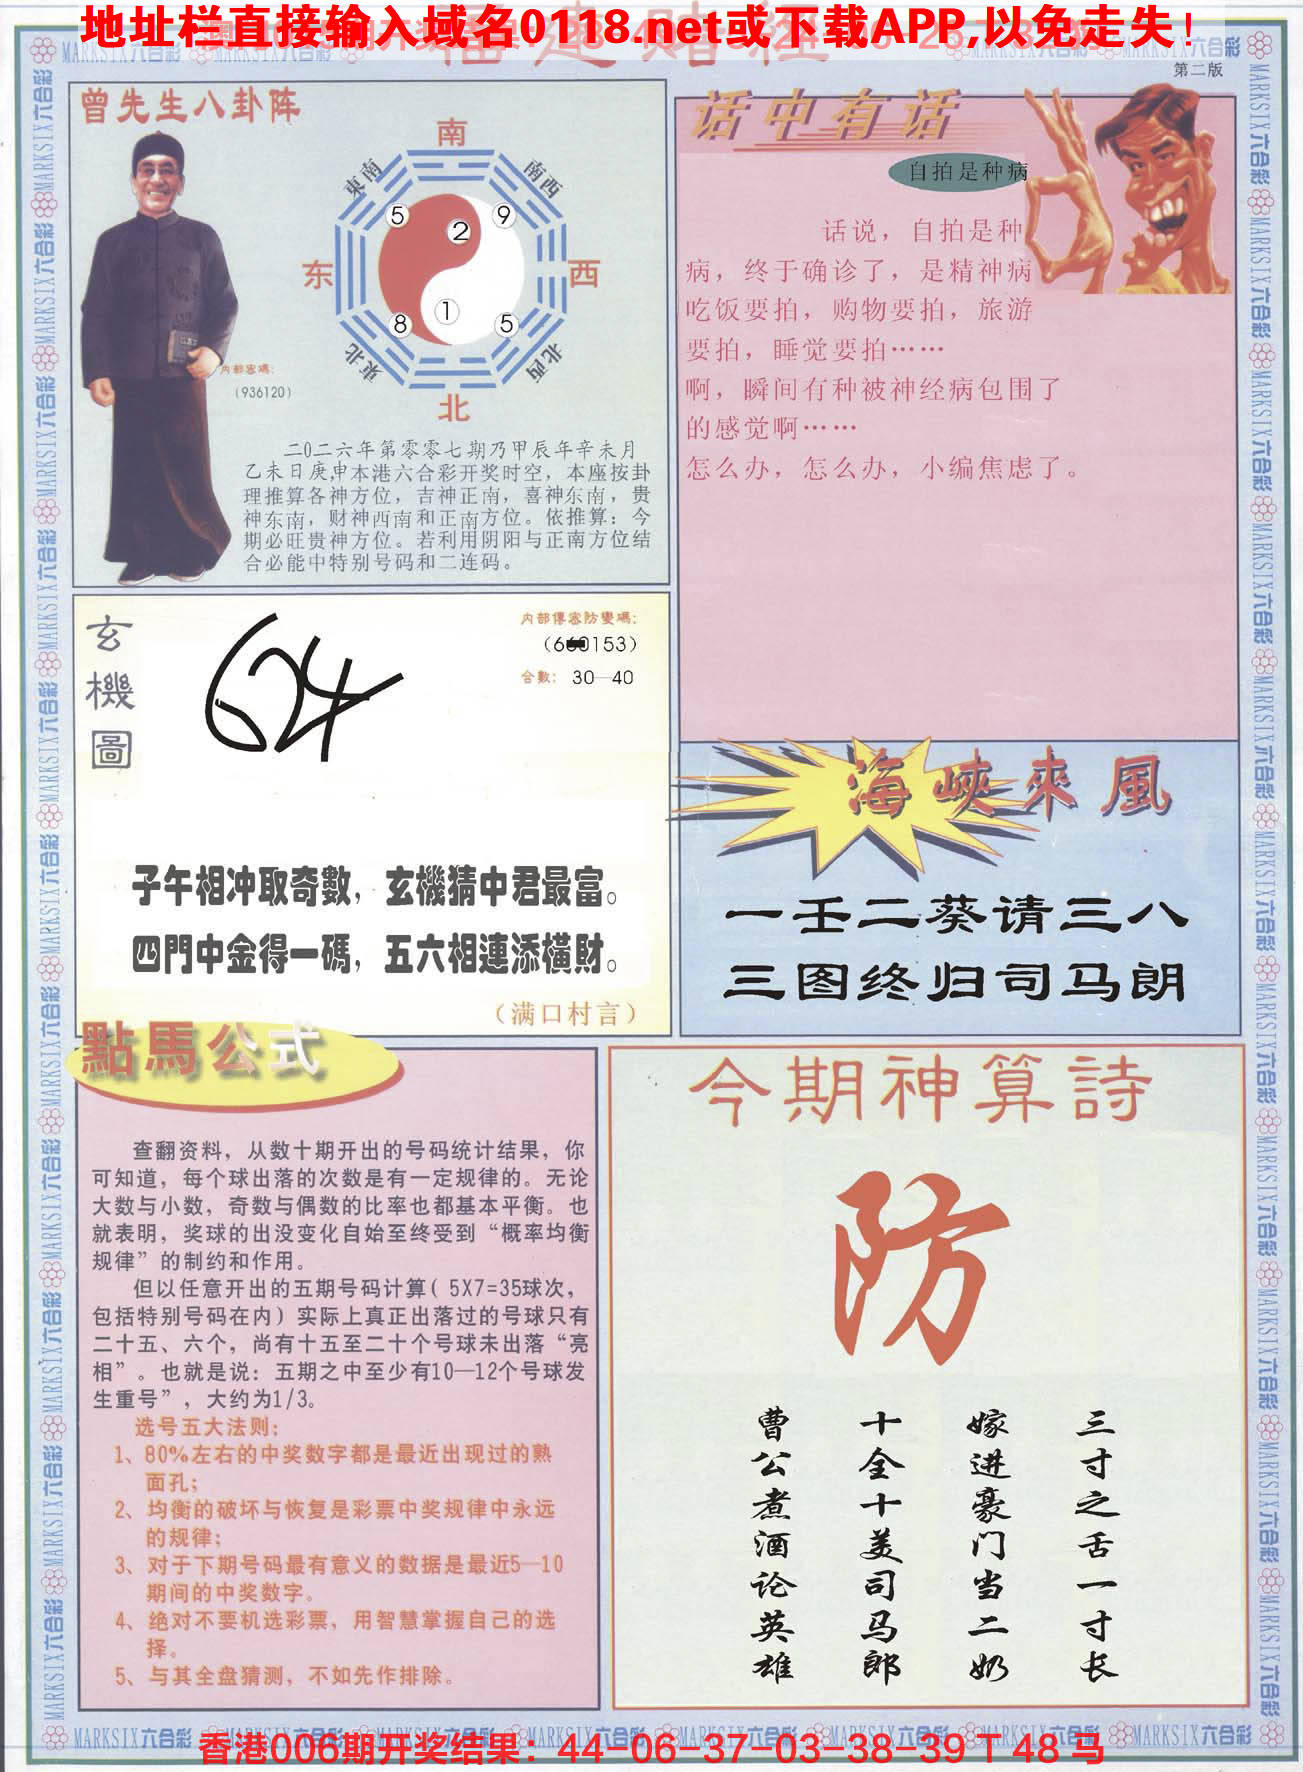 地址栏直接输入域名0118.net或下载APP,以免走失！
第二版
曾先生八卦阵
南
東南
南西
5
9
2
东
西
8
1
5
東北
北西
北
内部密碼：
（936120）
二0二六年第零零七期乃甲辰年辛未月
乙未日庚申本港六合彩开奖时空，本座按卦
理推算各神方位，吉神正南，喜神东南，贵
神东南，财神西南和正南方位。依推算：今
期必旺贵神方位。若利用阴阳与正南方位结
合必能中特别号码和二连码。
话中有话
自拍是种病
话说，自拍是种
病，终于确诊了，是精神病
吃饭要拍，购物要拍，旅游
要拍，睡觉要拍……
啊，瞬间有种被神经病包围了
的感觉啊……
怎么办，怎么办，小编焦虑了。
玄機圖
内部傳密防變碼：
合數： 30—40
子午相冲取奇數，玄機猜中君最富。
四門中金得一碼，五六相連添橫財。
（满口村言）
海峽來風
一壬二葵请三八
三图终归司马朗
點馬公式
查翻资料，从数十期开出的号码统计结果，你
可知道，每个球出落的次数是有一定规律的。无论
大数与小数，奇数与偶数的比率也都基本平衡。也
就表明，奖球的出没变化自始至终受到“概率均衡
规律”的制约和作用。
但以任意开出的五期号码计算（5X7=35球次，
包括特别号码在内）实际上真正出落过的号球只有
二十五、六个，尚有十五至二十个号球未出落“亮
相”。也就是说：五期之中至少有10—12个号球发
生重号”，大约为1/3。
选号五大法则：
1、80%左右的中奖数字都是最近出现过的熟
面孔；
2、均衡的破坏与恢复是彩票中奖规律中永远
的规律；
3、对于下期号码最有意义的数据是最近5—10
期间的中奖数字。
4、绝对不要机选彩票，用智慧掌握自己的选
择。
5、与其全盘猜测，不如先作排除。
今期神算詩
防
三寸之舌一寸长
嫁进豪门当二奶
十全十美司马郎
曹公煮酒论英雄
MARKSIX六合彩
香港006期开奖结果：44-06-37-03-38-39 T 48 马